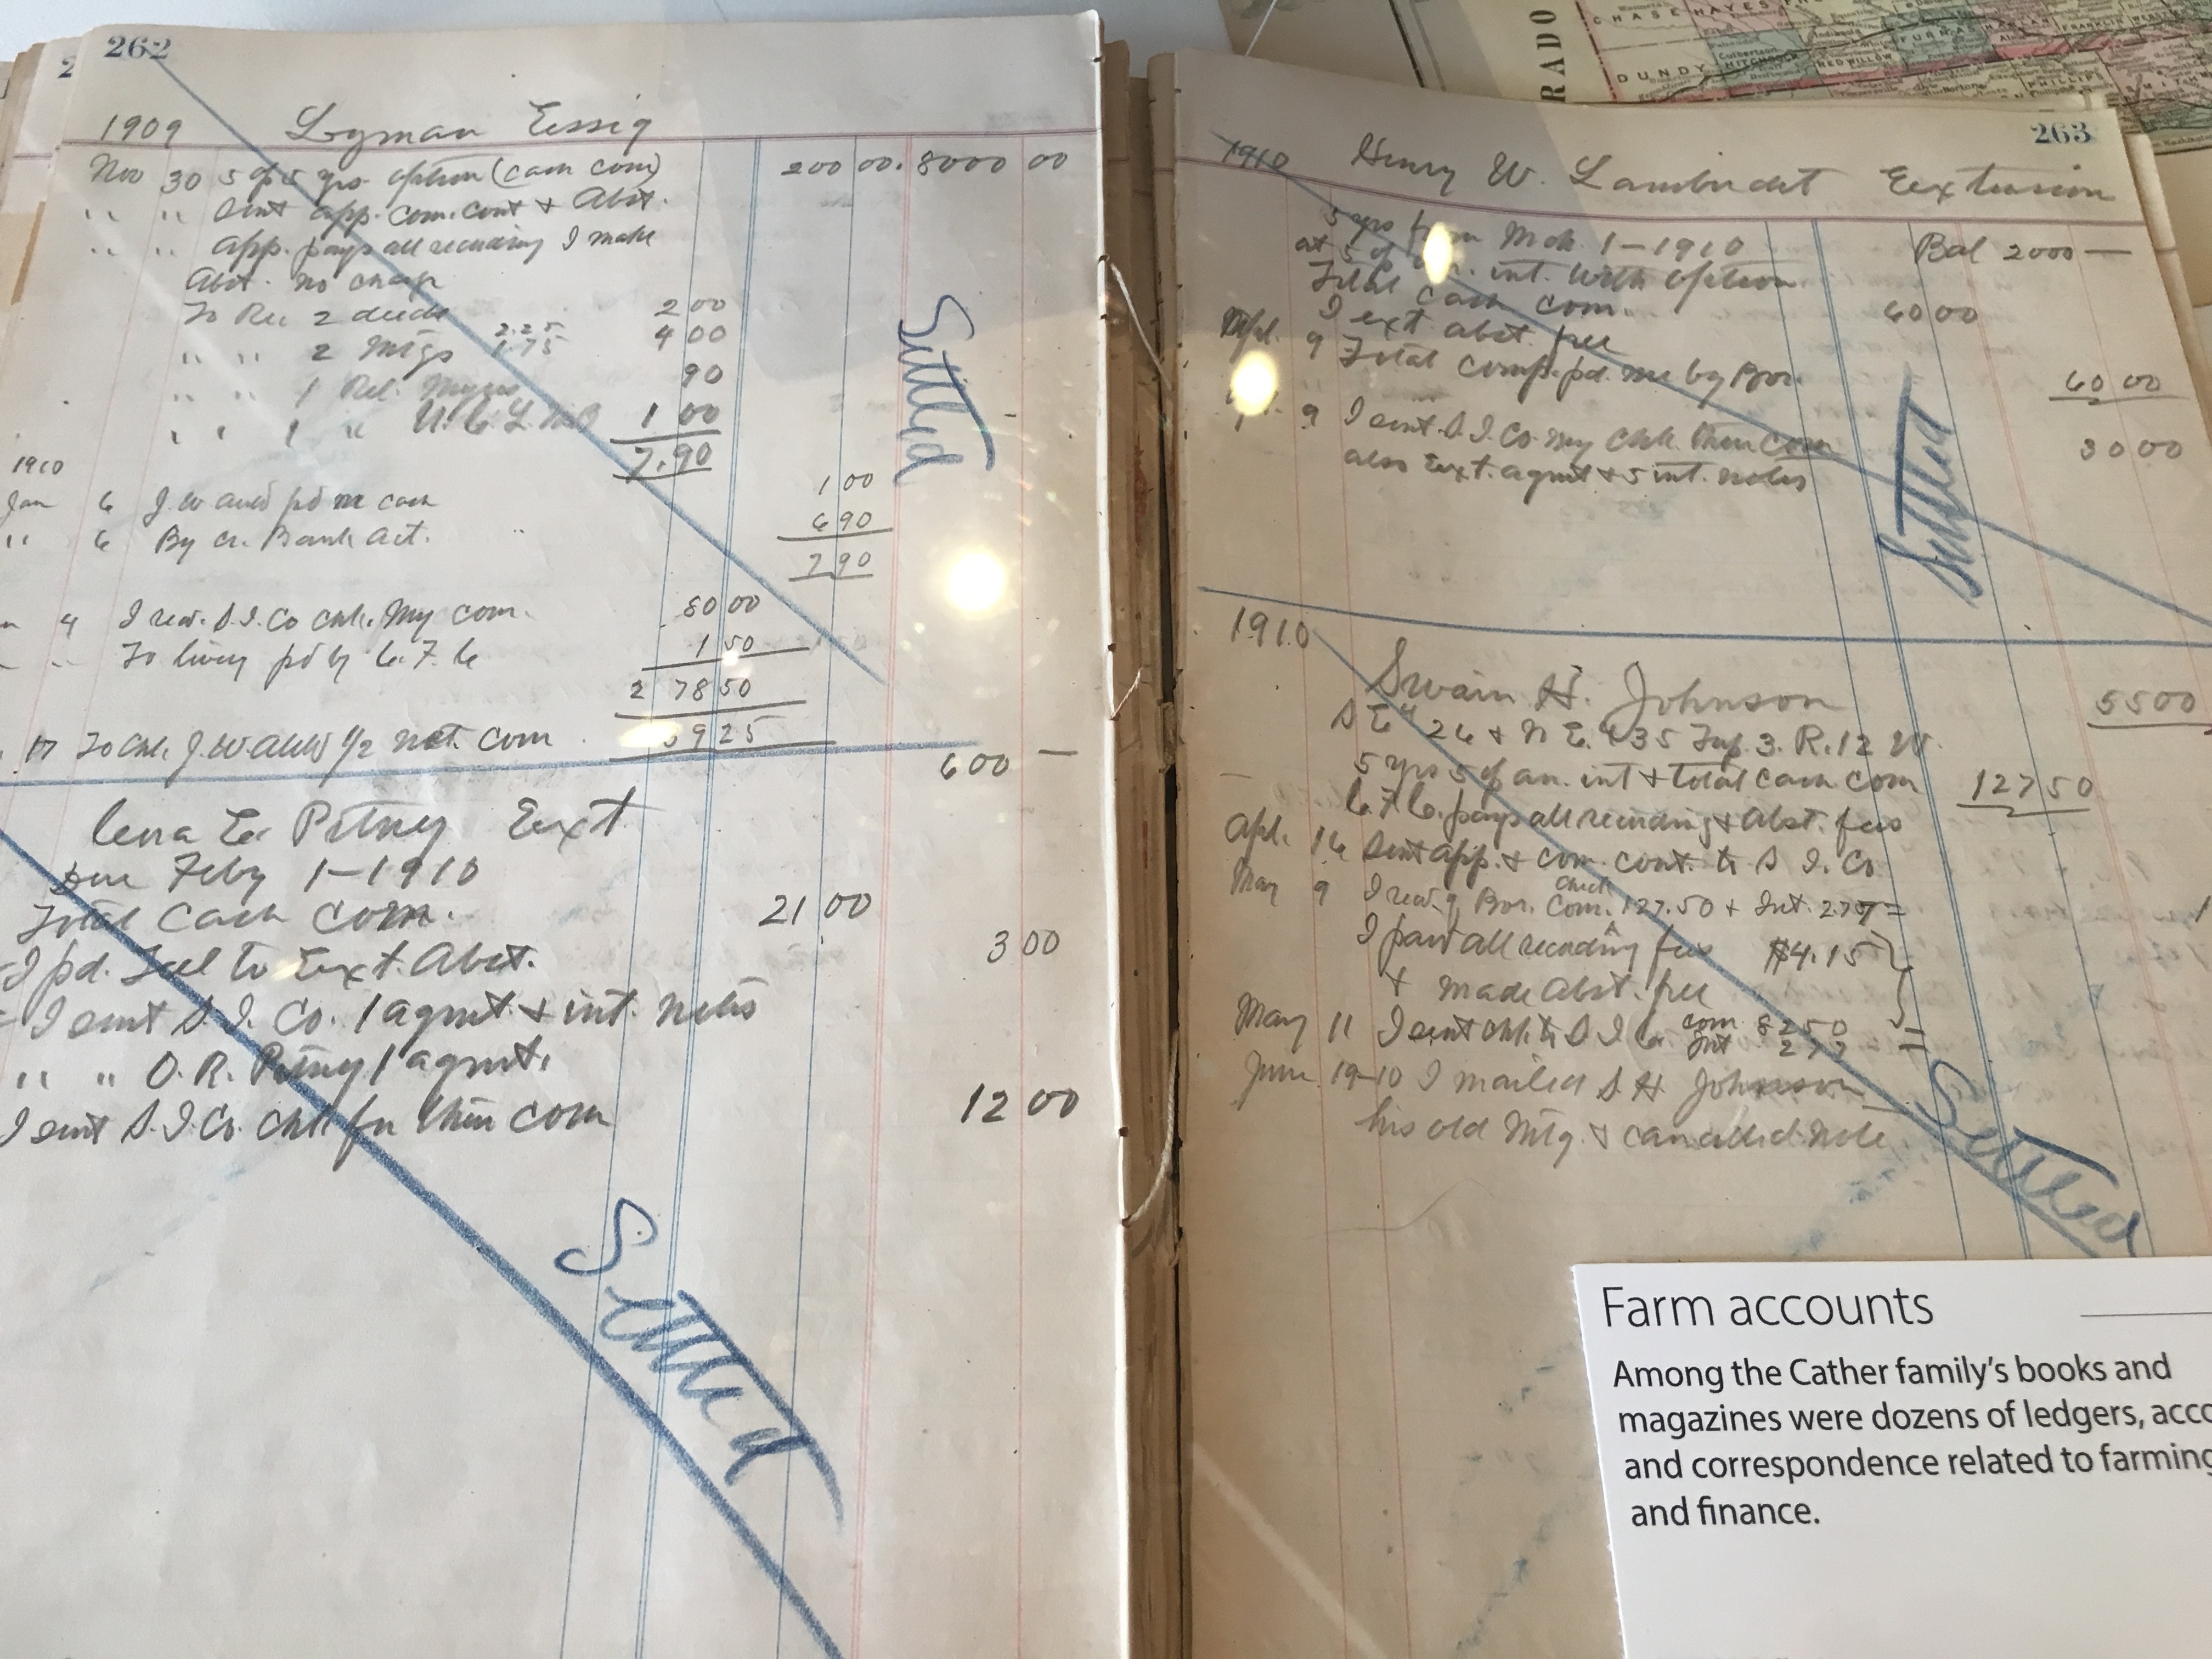 262
1909 Lyman Essig
Nov 30 5 % 5 yrs option (cash com) 200 00. 8000 00
" " Sent app. com. cont & Abst.
" " App. pays all recording I make
Abst. no charge
To Rec 2 deeds 2 00
" " 2 Mtgs 2.25 1.75 4 00
" " 1 Rel. 90
" " 1 " 1 00
7.90
1910
Jan 6 J. W. pd me cash 1 00
" 6 By cr. Bank act. " 6 90
7 90
4 I recd. S.I. Co chk. My com. 80 00
To livery pd by C. F. C. 1 50
2 78 50
17 To chk. J. W. 1/2 net com 39 25
Settled
600 —
Cena E. Pitney Ext
Due Feby 1-1910
Total Cash Com. 21 00
I pd. Teel to Ext. Abst. 3 00
I sent S. I. Co. 1 agmt & int. notes
" " O. R. Pitney 1 agmt.
I sent S. I. Co. chk for their com 12 00
Settled
263
1910 Henry W. Lambrecht Extension
5 yrs from Mch. 1-1910 Bal 2000 —
at 5 % an. int. with option
Total cash com. 60 00
I ext. abst. free
Apl. 9 Total comp. pd. me by Bor. 60 00
" 9 I sent S. I. Co. my chk. their com 30 00
also Ext. agmt & 5 int. notes
Settled
1910
Swain H. Johnson 5500
S E 4 26 & N E. 4 35 Twp. 3. R. 12 W.
5 yrs 5 % an. int & total cash com 127 50
C. F. C. pays all recording & Abst. fees
Apl. 16 Sent app. & com. cont. to S. I. Co.
May 9 I recd. of Bor. check Com. 127.50 + Int. 2.77 =
I paid all recording fees $4.15
& made Abst. free
May 11 I sent chk. to S I Co. com 82 50 =
Int 2 77
June 19-10 I mailed S. H. Johnson
his old Mtg. & cancelled note
Settled
RADO
CHASE
HAYES
DUNDY
HITCHCOCK
RED WILLOW
FURNAS
FRANKLIN
PHILLIPS
Farm accounts
Among the Cather family's books and
magazines were dozens of ledgers, acco
and correspondence related to farming
and finance.